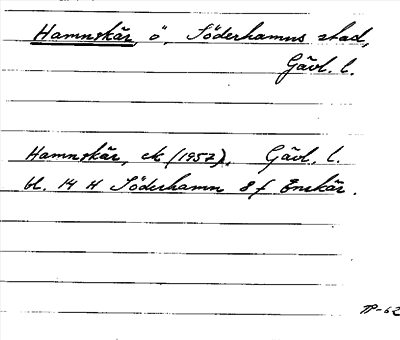 Hamnskär, ö, Söderhamns stad,
Gävl. l.
Hamnskär, ek (1957), Gävl. l.
bl. 14 H Söderhamn 8 f Enskär.
TP-62